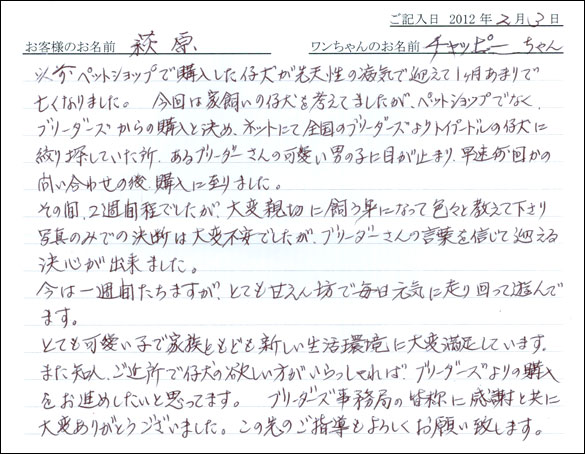 ご記入日 2012 年 2 月 3 日
お客様のお名前 萩原 ワンちゃんのお名前 チャッピー ちゃん
以前ペットショップで購入した仔犬が先天性の病気で迎えて1ヶ月あまりで
亡くなりました。 今回は家飼いの仔犬を考えてましたが、ペットショップでなく、
ブリーダーズからの購入と決め、ネットにて全国のブリーダーズよりトイプードルの仔犬に
絞り探していた所、あるブリーダーさんの可愛い男の子に目が止まり、早速何回かの
問い合わせの後、購入に至りました。
その間、2週間程でしたが、大変親切に飼う事になって色々と教えて下さり
写真のみでの決断は大変不安でしたが、ブリーダーさんの言葉を信じて迎える
決心が出来ました。
今は一週間たちますが、とても甘えん坊で毎日元気に走り回って遊んで
ます。
とても可愛い子で家族ともども新しい生活環境に大変満足しています。
また知人、ご近所で仔犬の欲しい方がいらっしゃれば ブリーダーズよりの購入
をお進めしたいと思ってます。 ブリーダーズ事務局の皆称に感謝と共に
大変ありがとうございました。この先のご指導もよろしくお願い致します。